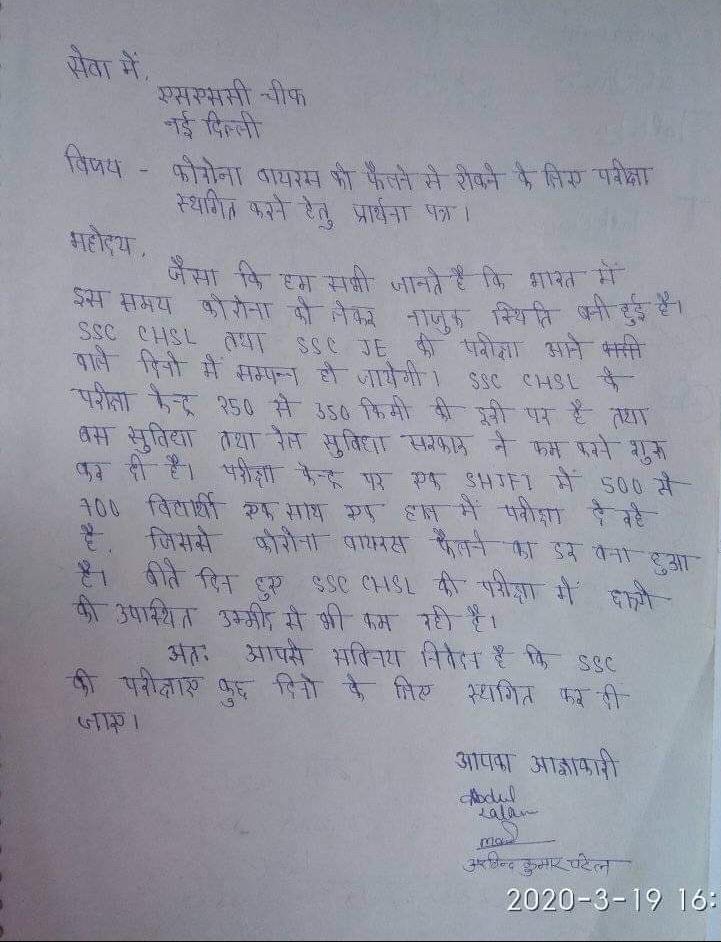 सेवा में,
एसएससी चीफ
नई दिल्ली
विषय - कोरोना वायरस को फैलने से रोकने के लिए परीक्षा
स्थगित करने हेतु प्रार्थना पत्र।
महोदय,
जैसा कि हम सभी जानते है कि भारत में
इस समय कोरोना को लेकर नाजुक स्थिति बनी हुई है।
SSC CHSL तथा SSC JE की परीक्षा आने
वाले दिनो में सम्पन्न हो जायेगी। SSC CHSL के
परीक्षा केन्द्र 250 से 350 किमी की दूरी पर है तथा
बस सुविधा तथा रेल सुविधा सरकार ने कम करने शुरू
कर दी है। परीक्षा केन्द्र पर एक SHIFT में 500 से
700 विद्यार्थी एक साथ एक हाल में परीक्षा दे रहे
है, जिससे कोरोना वायरस फैलने का डर बना हुआ
है। बीते दिन हुए SSC CHSL की परीक्षा में छात्रो
की उपास्थित उम्मीद से भी कम रही है।
अतः आपसे सविनय निवेदन है कि SSC
की परीक्षाए कुछ दिनो के लिए स्थगित कर दी
जाए।
आपका आज्ञाकारी
Abdul
अरविन्द कुमार पटेल
2020-3-19 16: